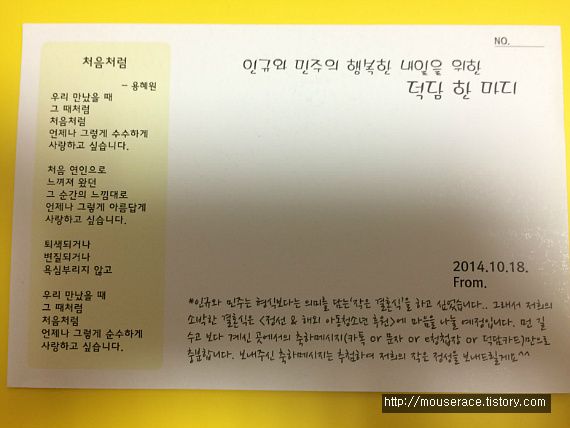 NO.
처음처럼
– 용혜원
우리 만났을 때
그 때처럼
처음처럼
언제나 그렇게 수수하게
사랑하고 싶습니다.
처음 연인으로
느껴져 왔던
그 순간의 느낌대로
언제나 그렇게 아름답게
사랑하고 싶습니다.
퇴색되거나
변질되거나
욕심부리지 않고
우리 만났을 때
그 때처럼
처음처럼
언제나 그렇게 순수하게
사랑하고 싶습니다.
인규와 민주의 행복한 내일을 위한
덕담 한 마디
2014.10.18.
From.
*인규와 민주는 형식보다는 의미를 담는 '작은 결혼식'을 하고 싶었습니다.. 그래서 저희의
소박한 결혼식은 <정선 & 해외 아동청소년 후원>에 마음을 나눌 예정입니다. 먼 길
수고 보다 계신 곳에서의 축하메시지(카톡 or 문자 or e청첩장 or 덕담카드)만으로
충분합니다. 보내주신 축하메시지는 추첨하여 저희의 작은 정성을 보내드릴게요^^
http://mouserace.tistory.com